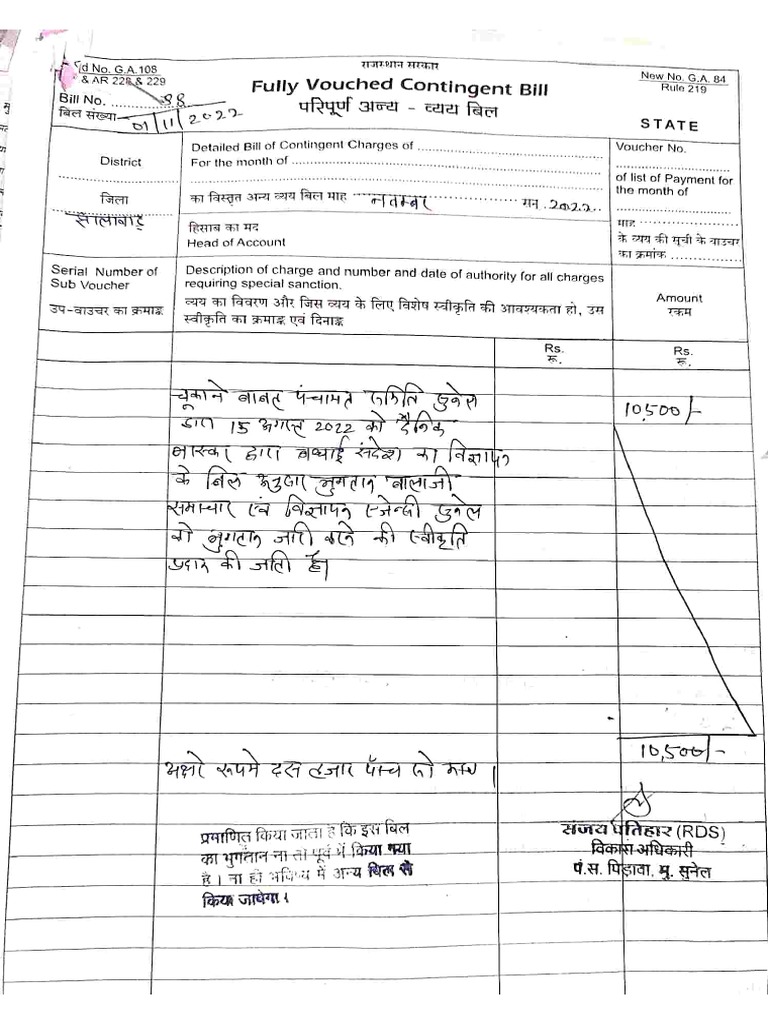 राजस्थान सरकार
d No. G.A.108
& AR 228 & 229
Fully Vouched Contingent Bill
New No. G.A. 84
Rule 219
Bill No. 88
बिल संख्या 01/11/2022
परिपूर्ण अन्य - व्यय बिल
STATE
District
Detailed Bill of Contingent Charges of
For the month of
Voucher No.
of list of Payment for
the month of
जिला
का विस्तृत अन्य व्यय बिल माह नवम्बर सन् 2022
झालावाड़
माह
हिसाब का मद
Head of Account
के व्यय की सूची के वाउचर
का क्रमांक
Serial Number of
Sub Voucher
उप-वाउचर का क्रमाङ्क
Description of charge and number and date of authority for all charges
requiring special sanction.
व्यय का विवरण और जिस व्यय के लिए विशेष स्वीकृति की आवश्यकता हो, उस
स्वीकृति का क्रमाङ्क एवं दिनाङ्क
Amount
रकम
Rs.
रू.
Rs.
रू.
चूकाने बाबत पंचायत समिति सुनेल
10,500/-
द्वारा 15 अगस्त 2022 को दैनिक
भास्कर द्वारा बधाई संदेश का विज्ञापन
के बिल अनुसार भुगतान बालाजी
समाचार एवं विज्ञापन एजेन्सी सुनेल
को भुगतान जारी करने की स्वीकृति
प्रदान की जाती है।
10,500/-
अक्षरे रूपये दस हजार पाँच सौ मात्र।
प्रमाणित किया जाता है कि इस बिल
का भुगतान ना तो पूर्व में किया गया
है। ना ही भविष्य में अन्य बिल से
किया जायेगा।
संजय प्रतिहार (RDS)
विकास अधिकारी
पं.स. पिड़ावा, मु. सुनेल